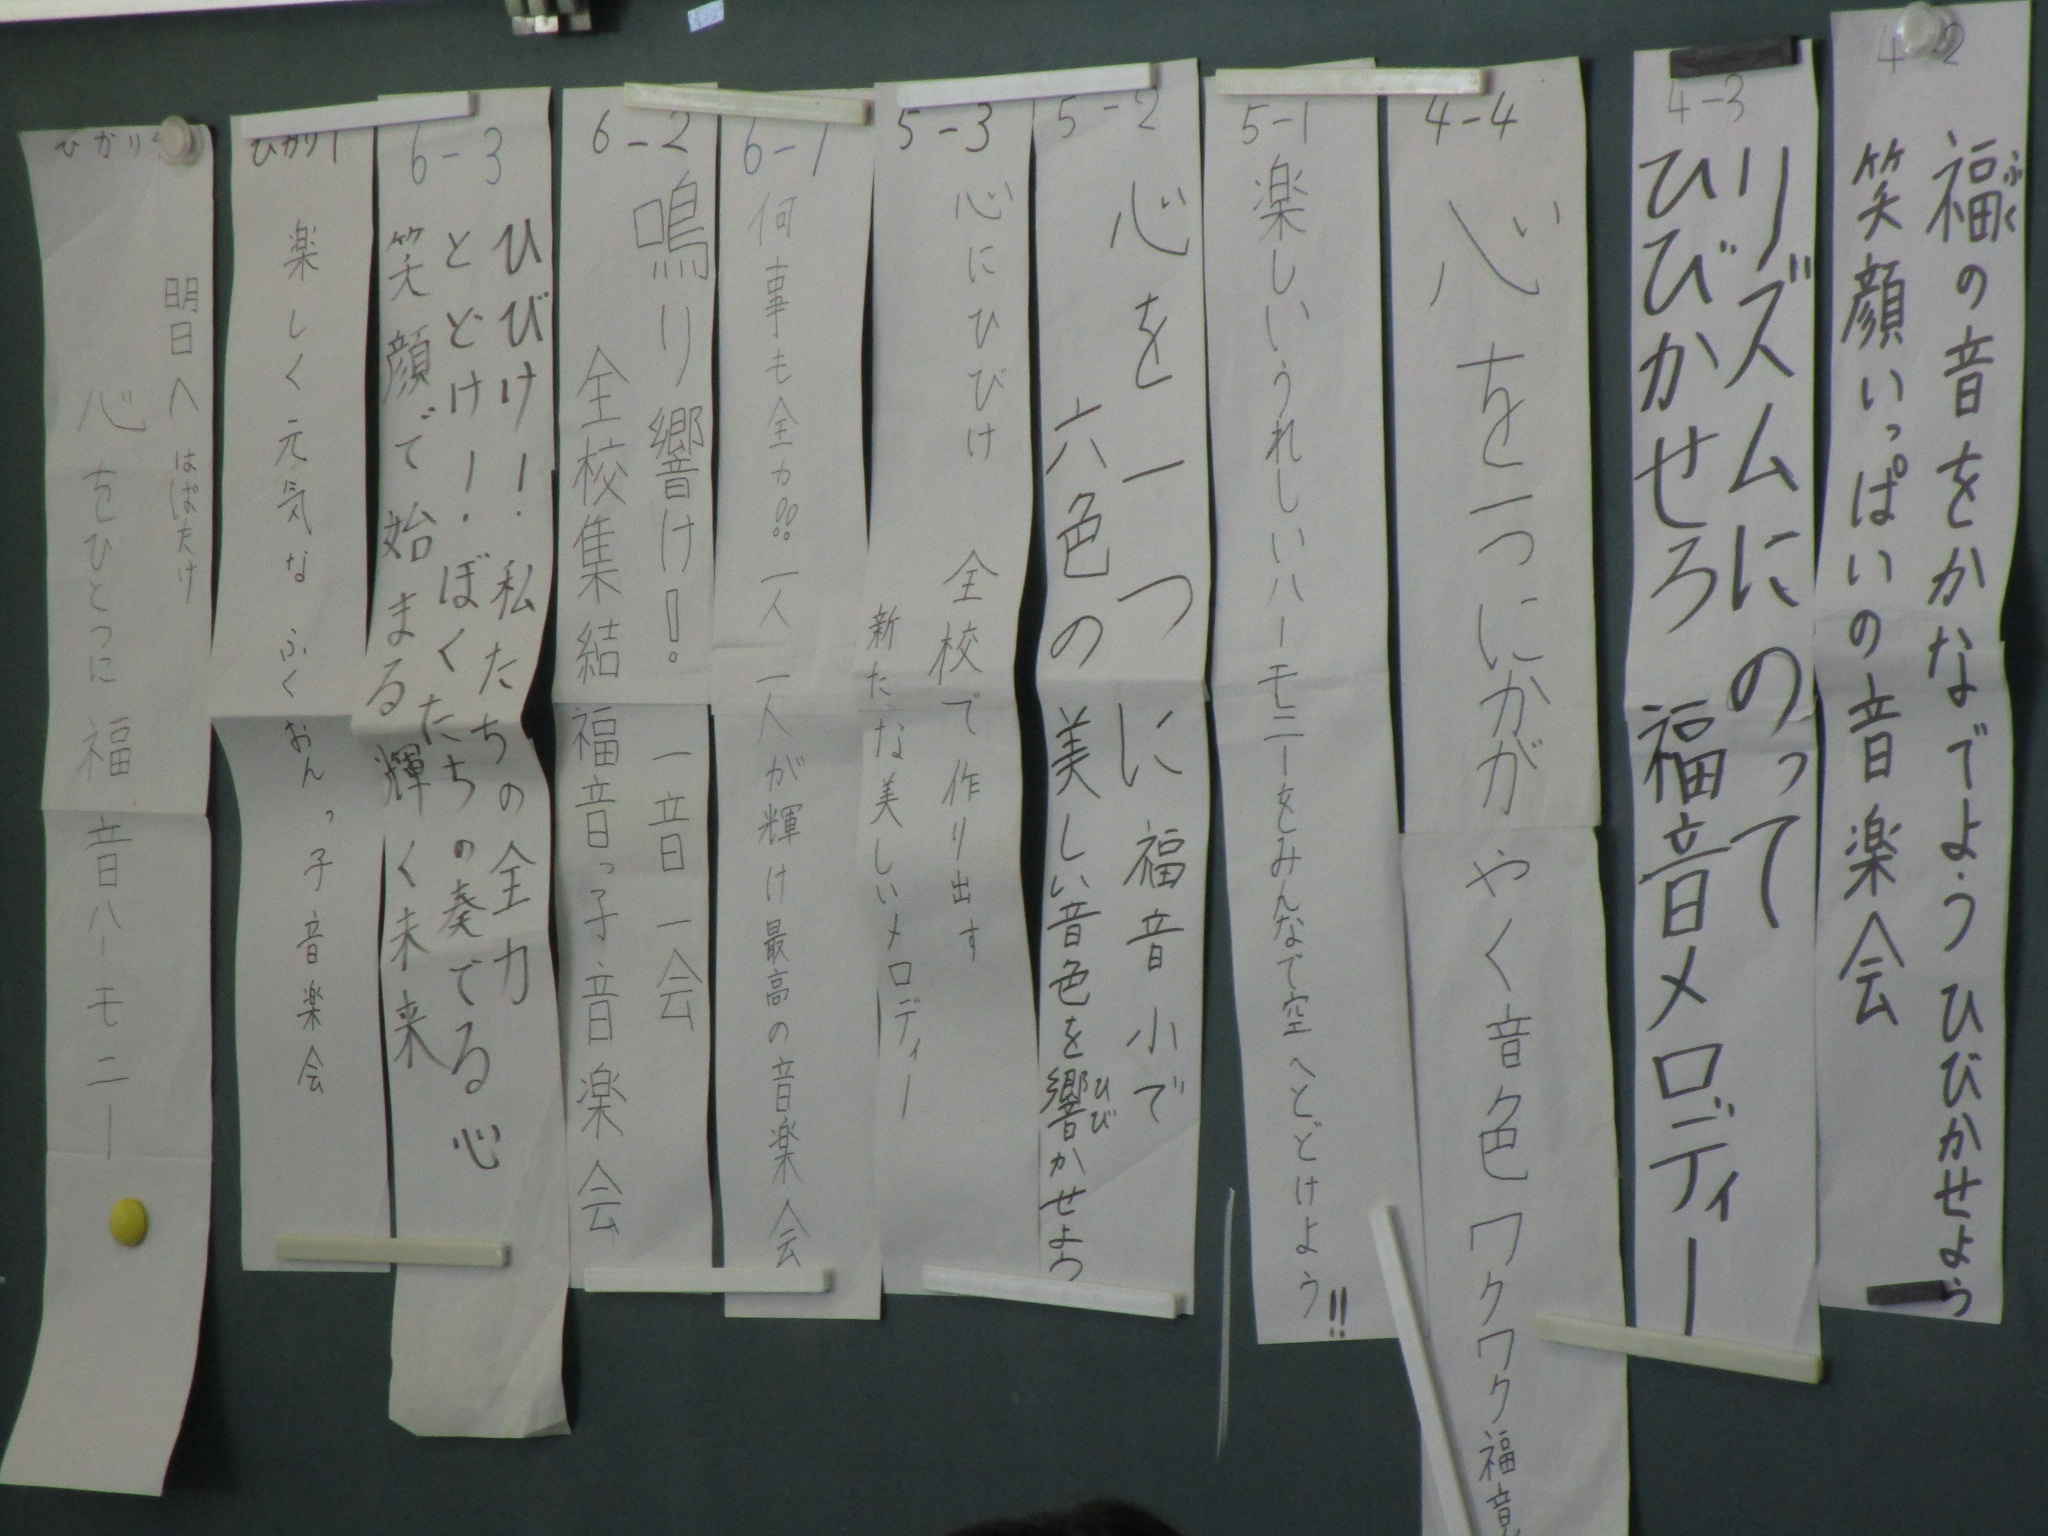 4-2
福の音をかなでよう ひびかせよう
ふく
笑顔いっぱいの音楽会
4-3
リズムにのって
ひびかせろ 福音メロディー
4-4
心を一つにかがやく音色ワクワク福音
5-1
楽しいうれしいハーモニーをみんなで空へとどけよう!!
5-2
心を一つに福音小で
六色の美しい音色を響かせよう
ひび
5-3
心にひびけ 全校で作り出す
新たな美しいメロディー
6-1
何事も全力!! 一人一人が輝け最高の音楽会
6-2
鳴り響け! 一音一会
全校集結 福音っ子音楽会
6-3
ひびけ!私たちの全力
とどけー!ぼくたちの奏でる心
笑顔で始まる輝く未来
ひかり1
楽しく元気な ふくおんっ子音楽会
ひかり
明日へ はばたけ
心をひとつに 福音ハーモニー